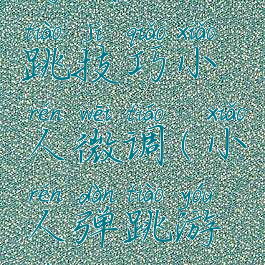 tiào jì qiǎo xiǎo
跳技巧小
rén wēi tiáo xiǎo
人微调(小
rén dàn tiào yóu
人弹跳游